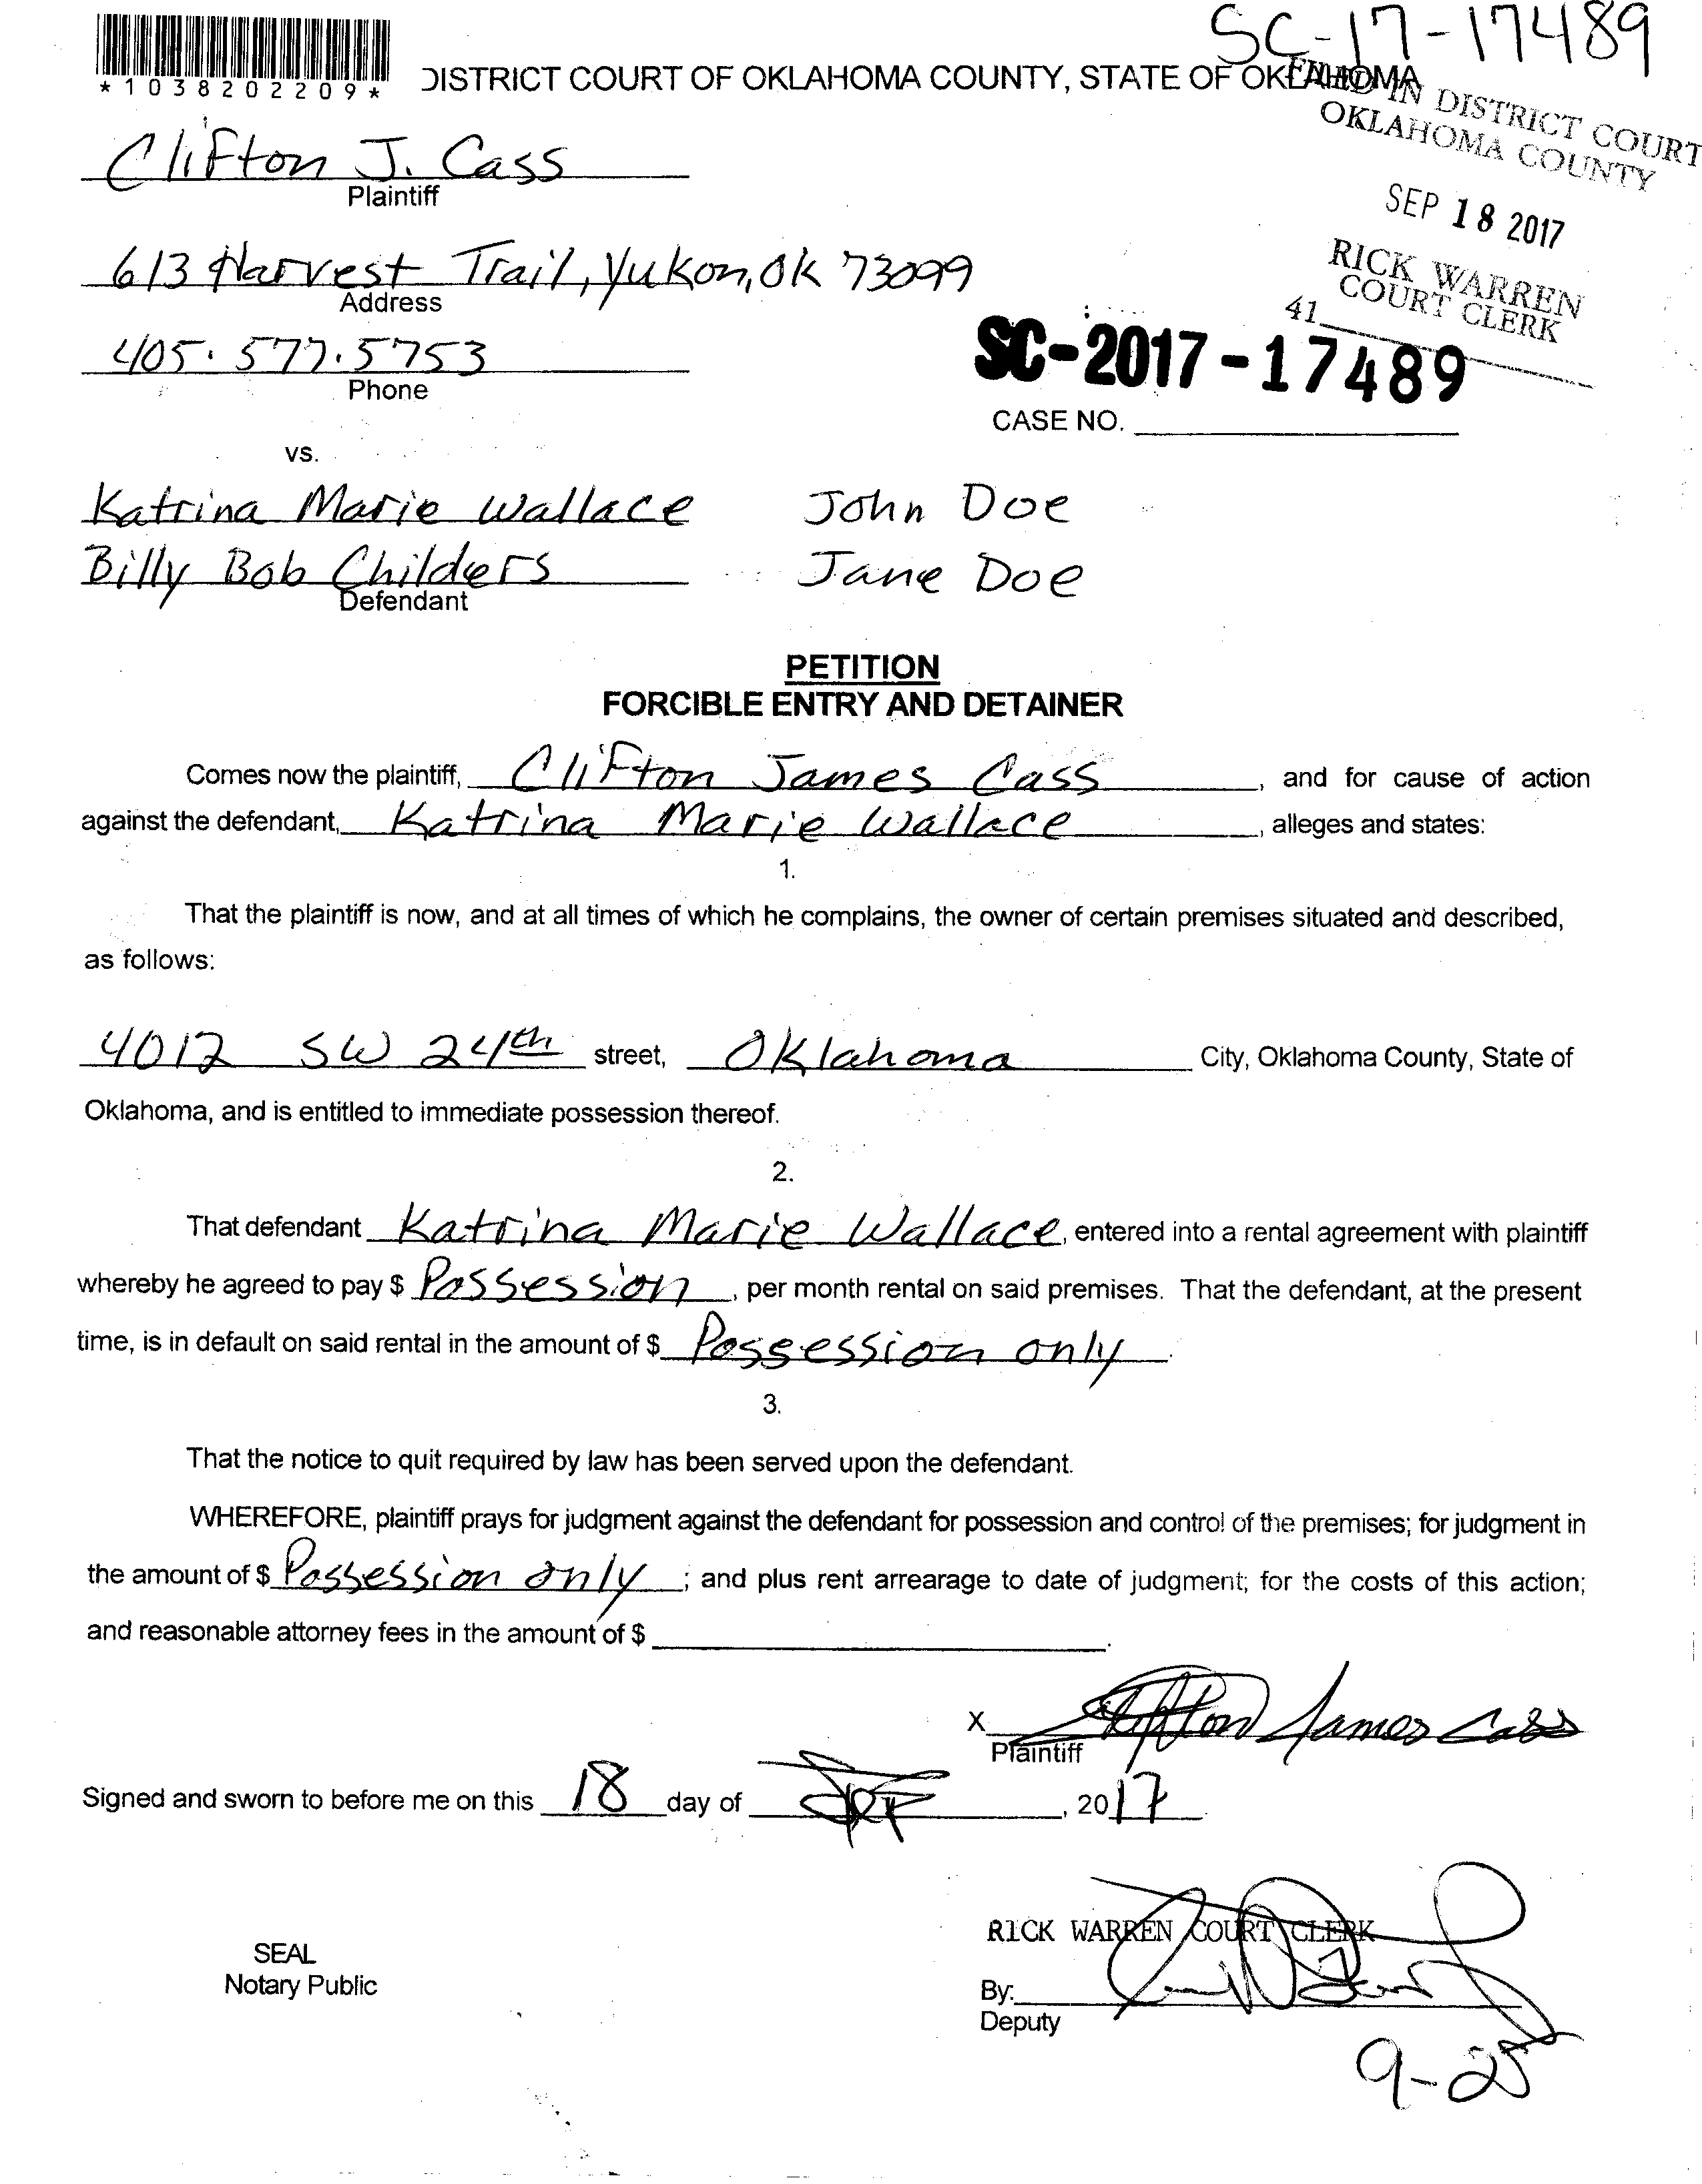 SC-17-17489
*1038202209*
DISTRICT COURT OF OKLAHOMA COUNTY, STATE OF OKLAHOMA
FILED IN DISTRICT COURT
OKLAHOMA COUNTY
SEP 18 2017
RICK WARREN
COURT CLERK
41
Clifton J. Cass
Plaintiff
613 Harvest Trail, Yukon, OK 73099
Address
405.577.5753
Phone
SC-2017-17489
CASE NO.
vs.
Katrina Marie Wallace John Doe
Billy Bob Childers Jane Doe
Defendant
PETITION
FORCIBLE ENTRY AND DETAINER
Comes now the plaintiff, Clifton James Cass, and for cause of action
against the defendant, Katrina Marie Wallace, alleges and states:
1.
That the plaintiff is now, and at all times of which he complains, the owner of certain premises situated and described,
as follows:
4012 SW 24th street, Oklahoma City, Oklahoma County, State of
Oklahoma, and is entitled to immediate possession thereof.
2.
That defendant Katrina Marie Wallace, entered into a rental agreement with plaintiff
whereby he agreed to pay $ Possession, per month rental on said premises. That the defendant, at the present
time, is in default on said rental in the amount of $ Possession only.
3.
That the notice to quit required by law has been served upon the defendant.
WHEREFORE, plaintiff prays for judgment against the defendant for possession and control of the premises; for judgment in
the amount of $ Possession only; and plus rent arrearage to date of judgment; for the costs of this action;
and reasonable attorney fees in the amount of $ .
X Clifton James Cass
Plaintiff
Signed and sworn to before me on this 18 day of , 2017.
RICK WARREN COURT CLERK
SEAL
Notary Public
By:
Deputy
9-25